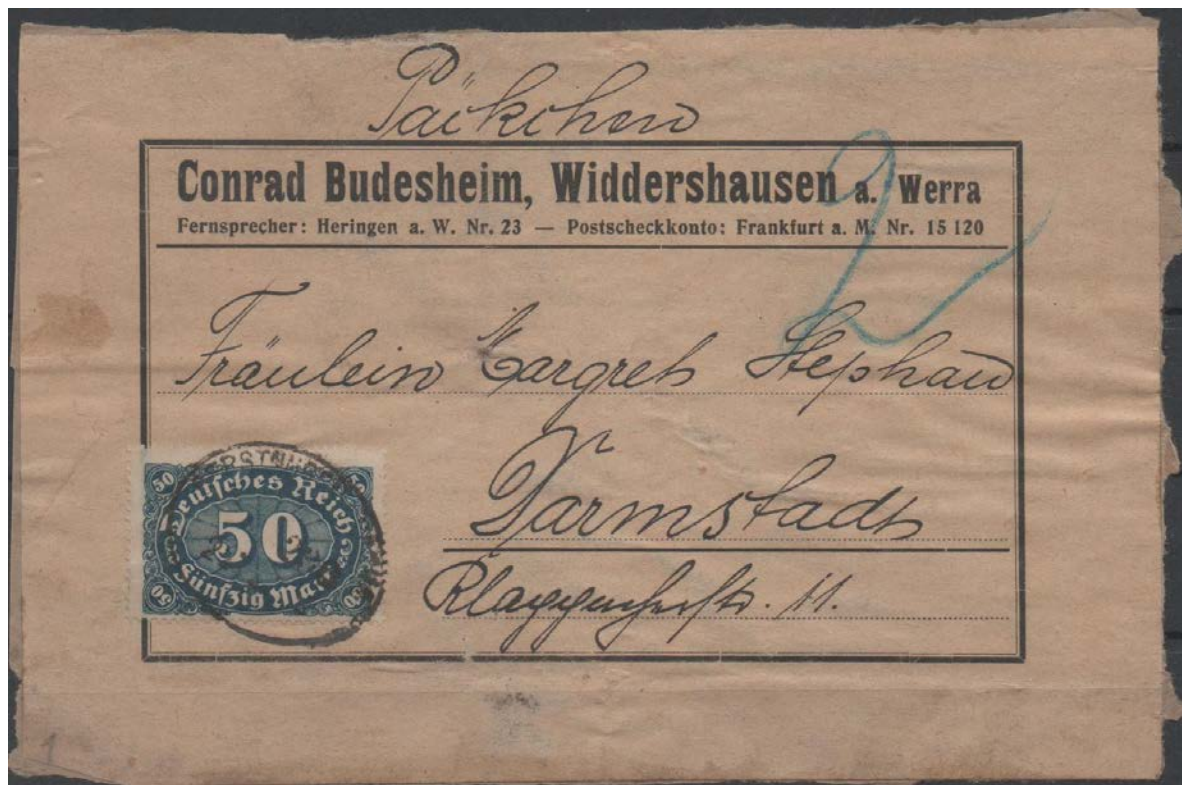 Päckchen
2
Conrad Budesheim, Widdershausen a. Werra
Fernsprecher: Heringen a. W. Nr. 23 — Postscheckkonto: Frankfurt a. M. Nr. 15 120
Fräulein Stephan
Darmstadt
11.
50 50
Deutsches Reich
50
Fünfzig Mark
50 50
1